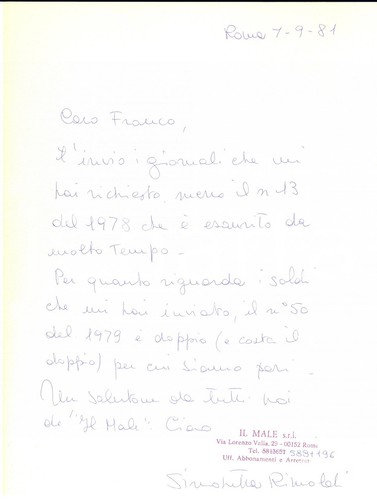 Roma 7-9-81
Caro Franco,
t'invio i giornali che mi
hai richiesto, meno il n 13
del 1978 che è esaurito da
molto tempo -
Per quanto riguarda i soldi
che mi hai inviato, il n° 50
del 1979 è doppio (e costa il
doppio) per cui siamo pari -
Un salutone da tutti noi
de "Il Male". Ciao
IL MALE s.r.l.
Via Lorenzo Valla, 25 - 00152 Roma
Tel. 5891196
Uff. Abbonamenti e Arretrati
Simonetta Rimoldi